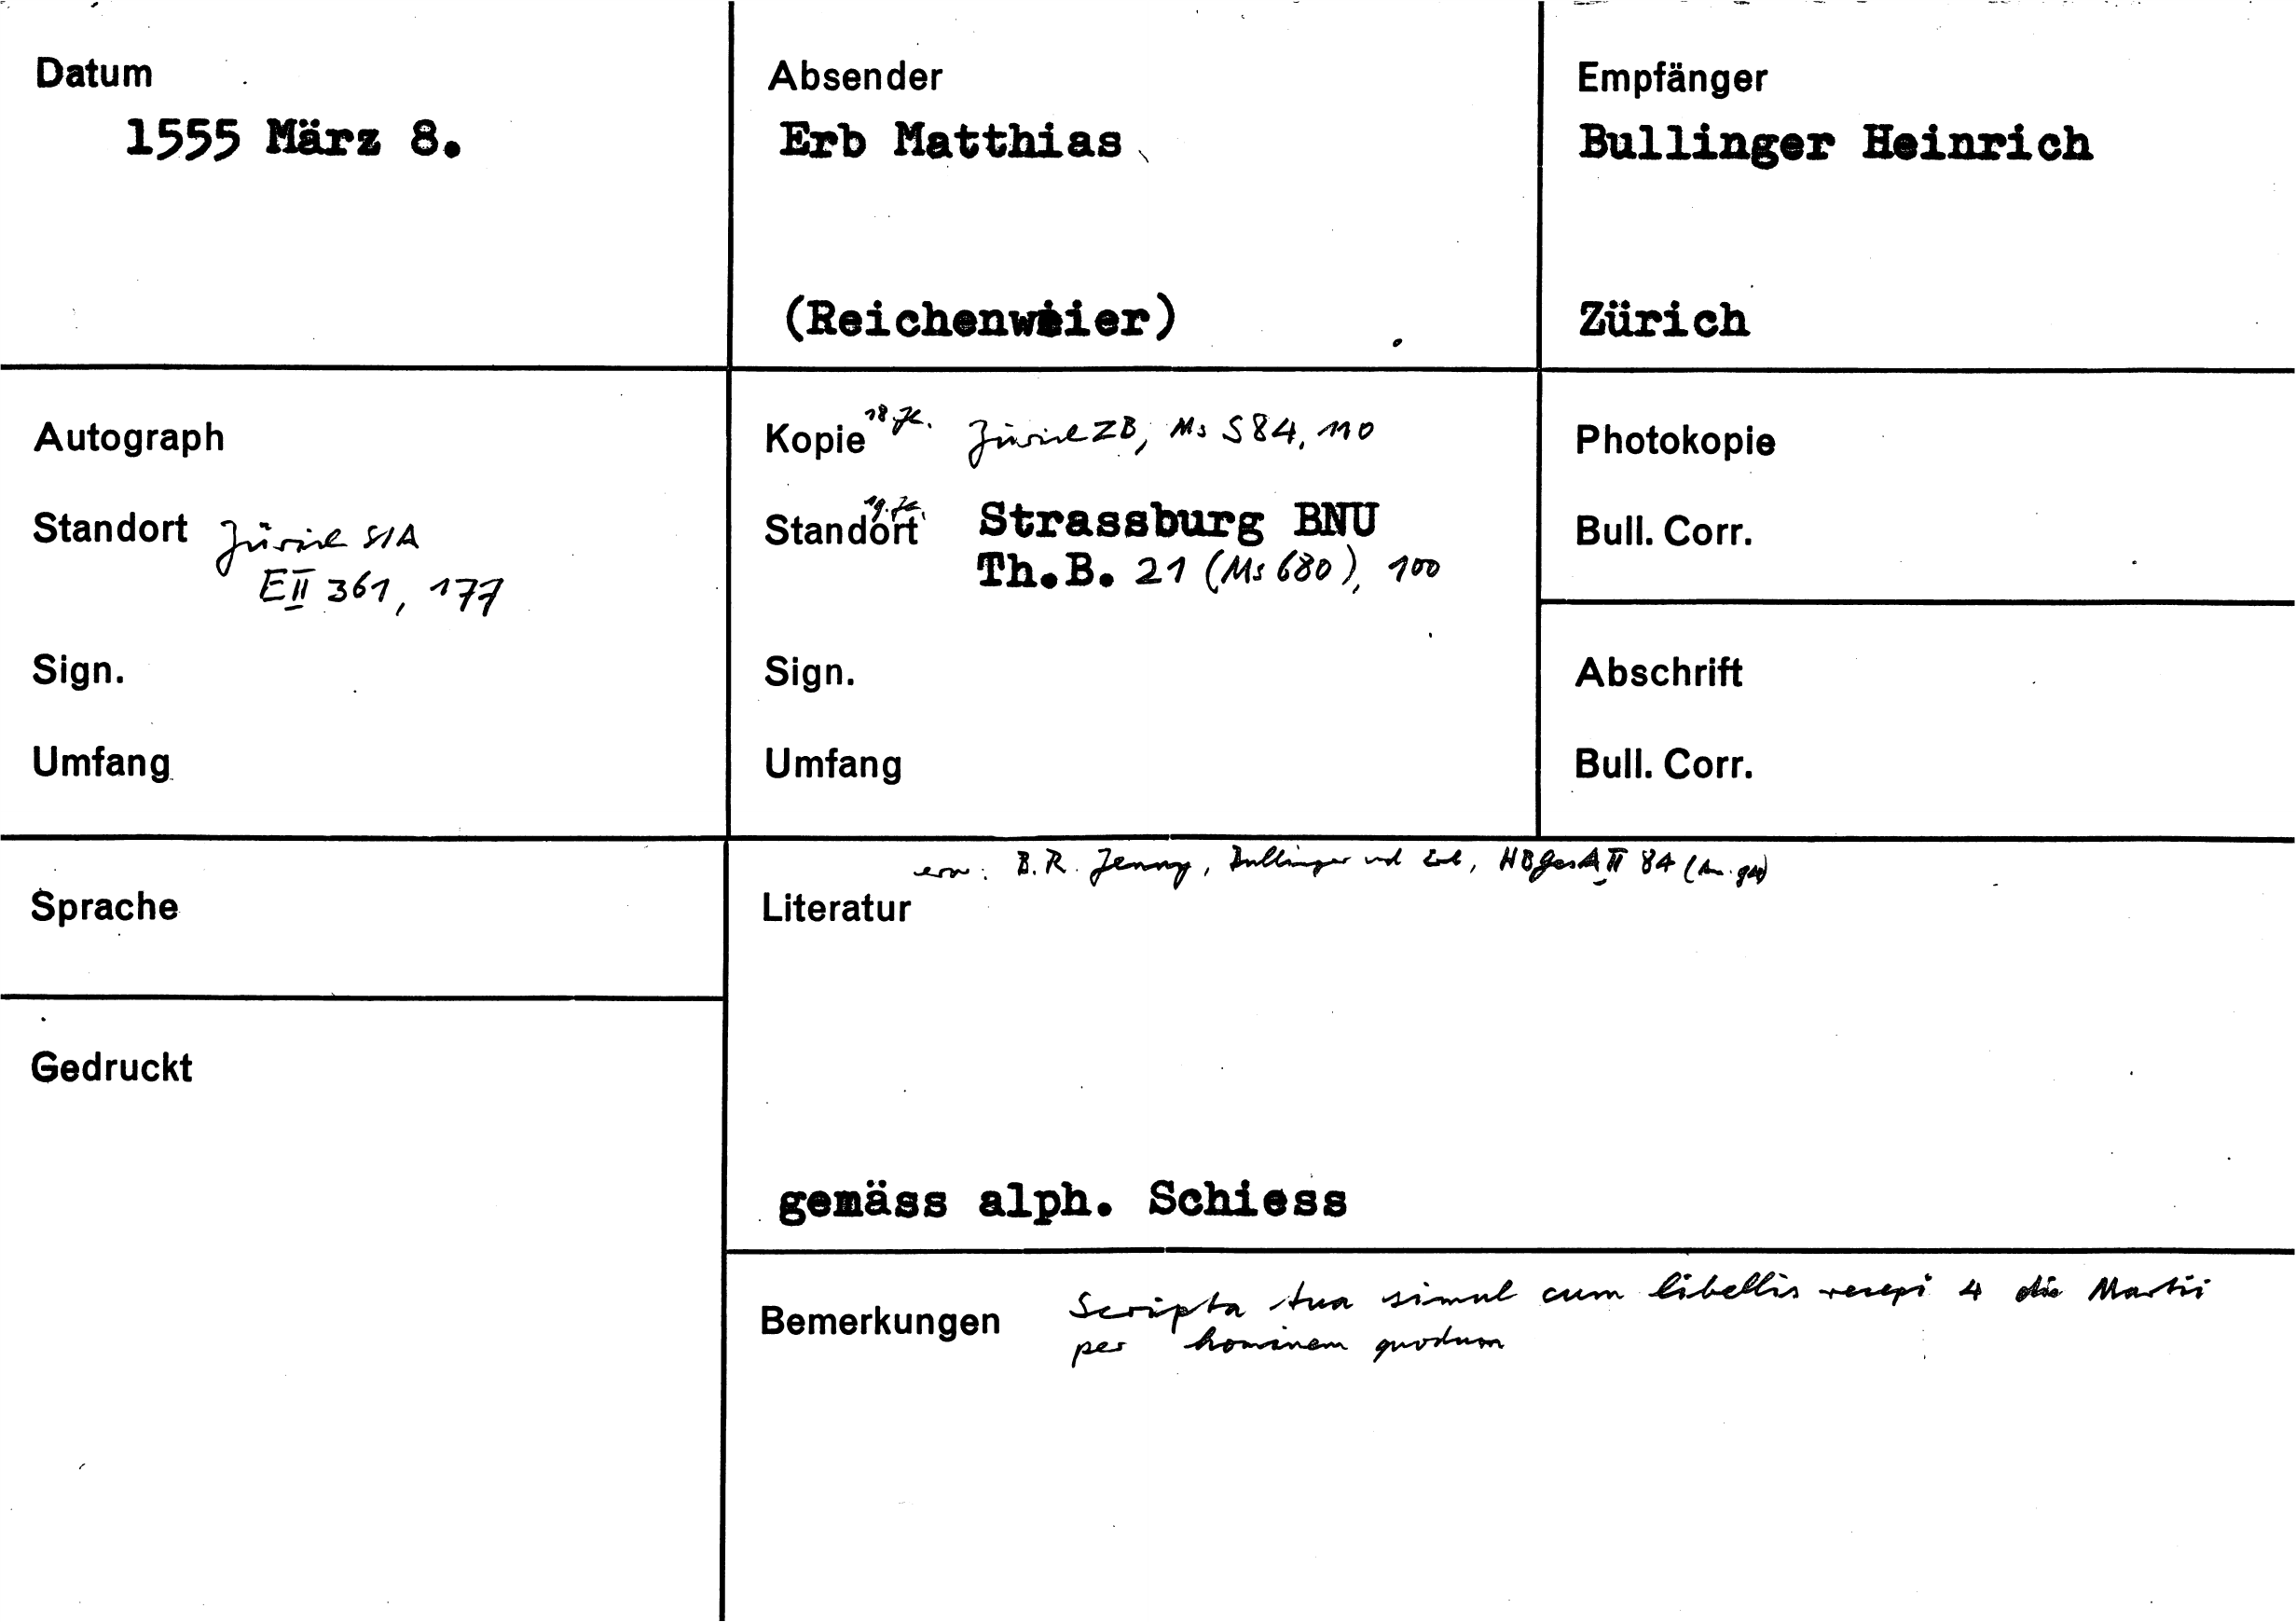 Datum
1555 März 8.
Absender
Erb Matthias
(Reichenweier)
Empfänger
Bullinger Heinrich
Zürich
Autograph
Standort Zürich StA
E II 361, 177
Sign.
Umfang
Kopie 18. Jh. Zürich ZB, Ms S 84, 110
Standort 19. Jh. Strassburg BNU
Th.B. 21 (Ms 680), 100
Sign.
Umfang
Photokopie
Bull. Corr.
Abschrift
Bull. Corr.
Sprache
Gedruckt
erw: B.R. Jenny, Bullinger und Erb, HBGesA II 84
Literatur
gemäss alph. Schiess
Bemerkungen Scripta tua simul cum libellis recepi 4 die Martii
per hominem quodum